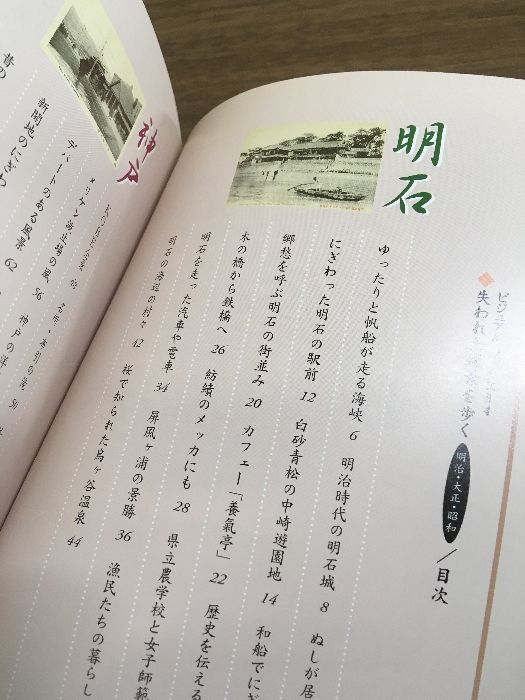 ビジュアル
失われ
を歩く
明治・大正・昭和
／目次
明石
ゆったりと帆船が走る海峡 6 明治時代の明石城 8 ぬしが居
にぎわった明石の駅前 12 白砂青松の中崎遊園地 14 和船でにぎ
郷愁を呼ぶ明石の街並み 20 カフェー「養氣亭」 22 歴史を伝える
木の橋から鉄橋へ 26 紡績のメッカにも 28 県立農学校と女子師範
明石を走った汽車や電車 34 屏風ヶ浦の景勝 36 漁民たちの暮らし
明石の海辺の村々 42 桜で知られた烏ヶ谷温泉 44
神戸
名所・布引の滝 50
メリケン波止場の風 56 神戸の洋
デパートのある風景 62
新開地のにぎわ
昔の